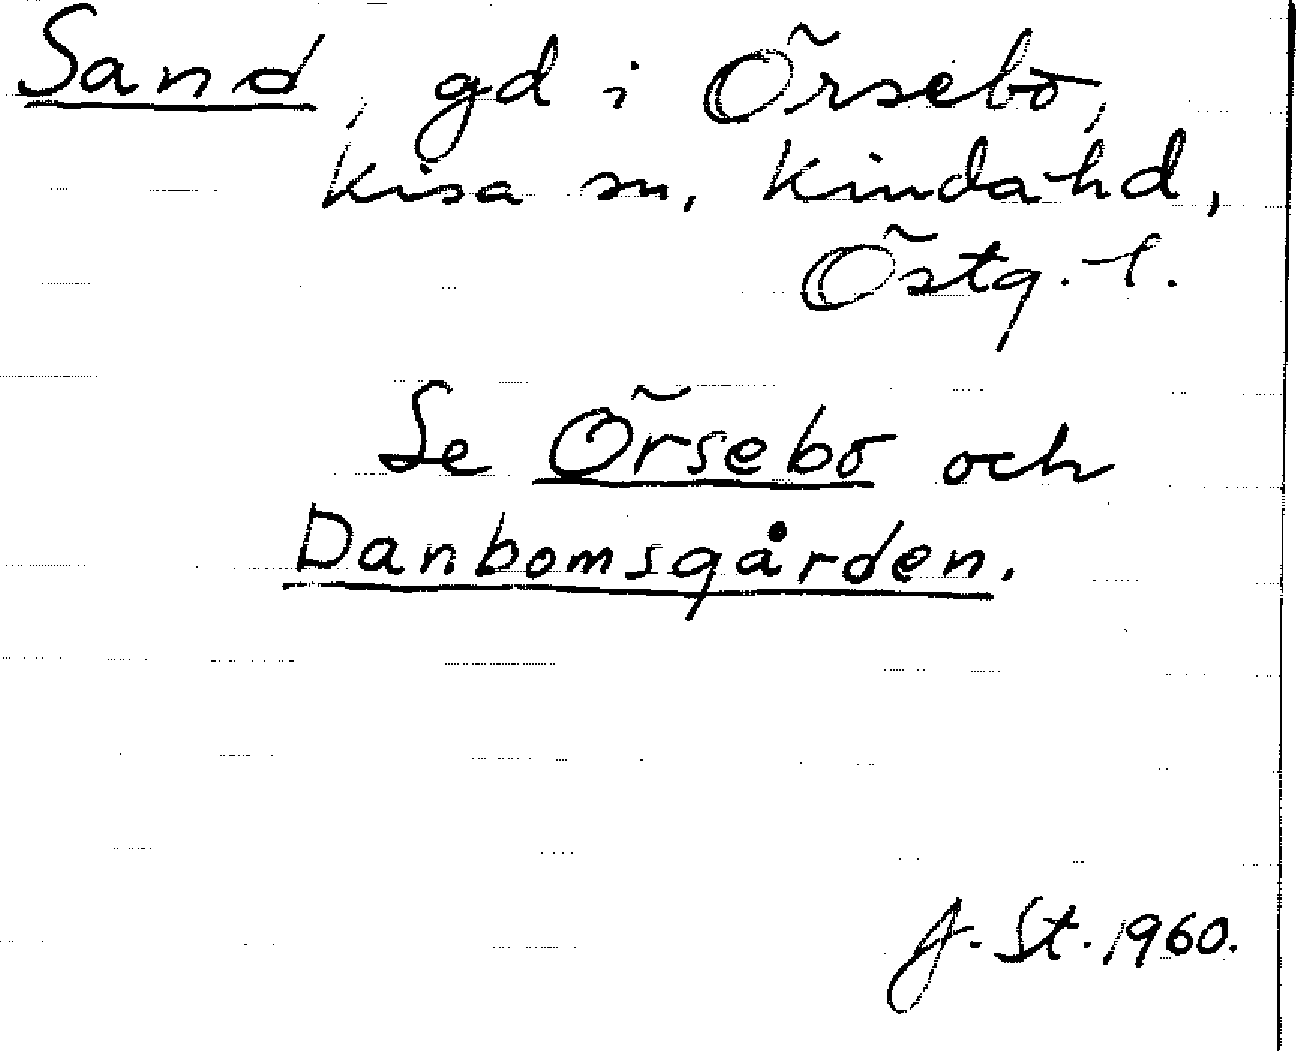 Sand, gd i Örsebo,
Kisa sn, Kinda hd,
Östg. l.
Se Örsebo och
Danbomsgården.
J. St. 1960.